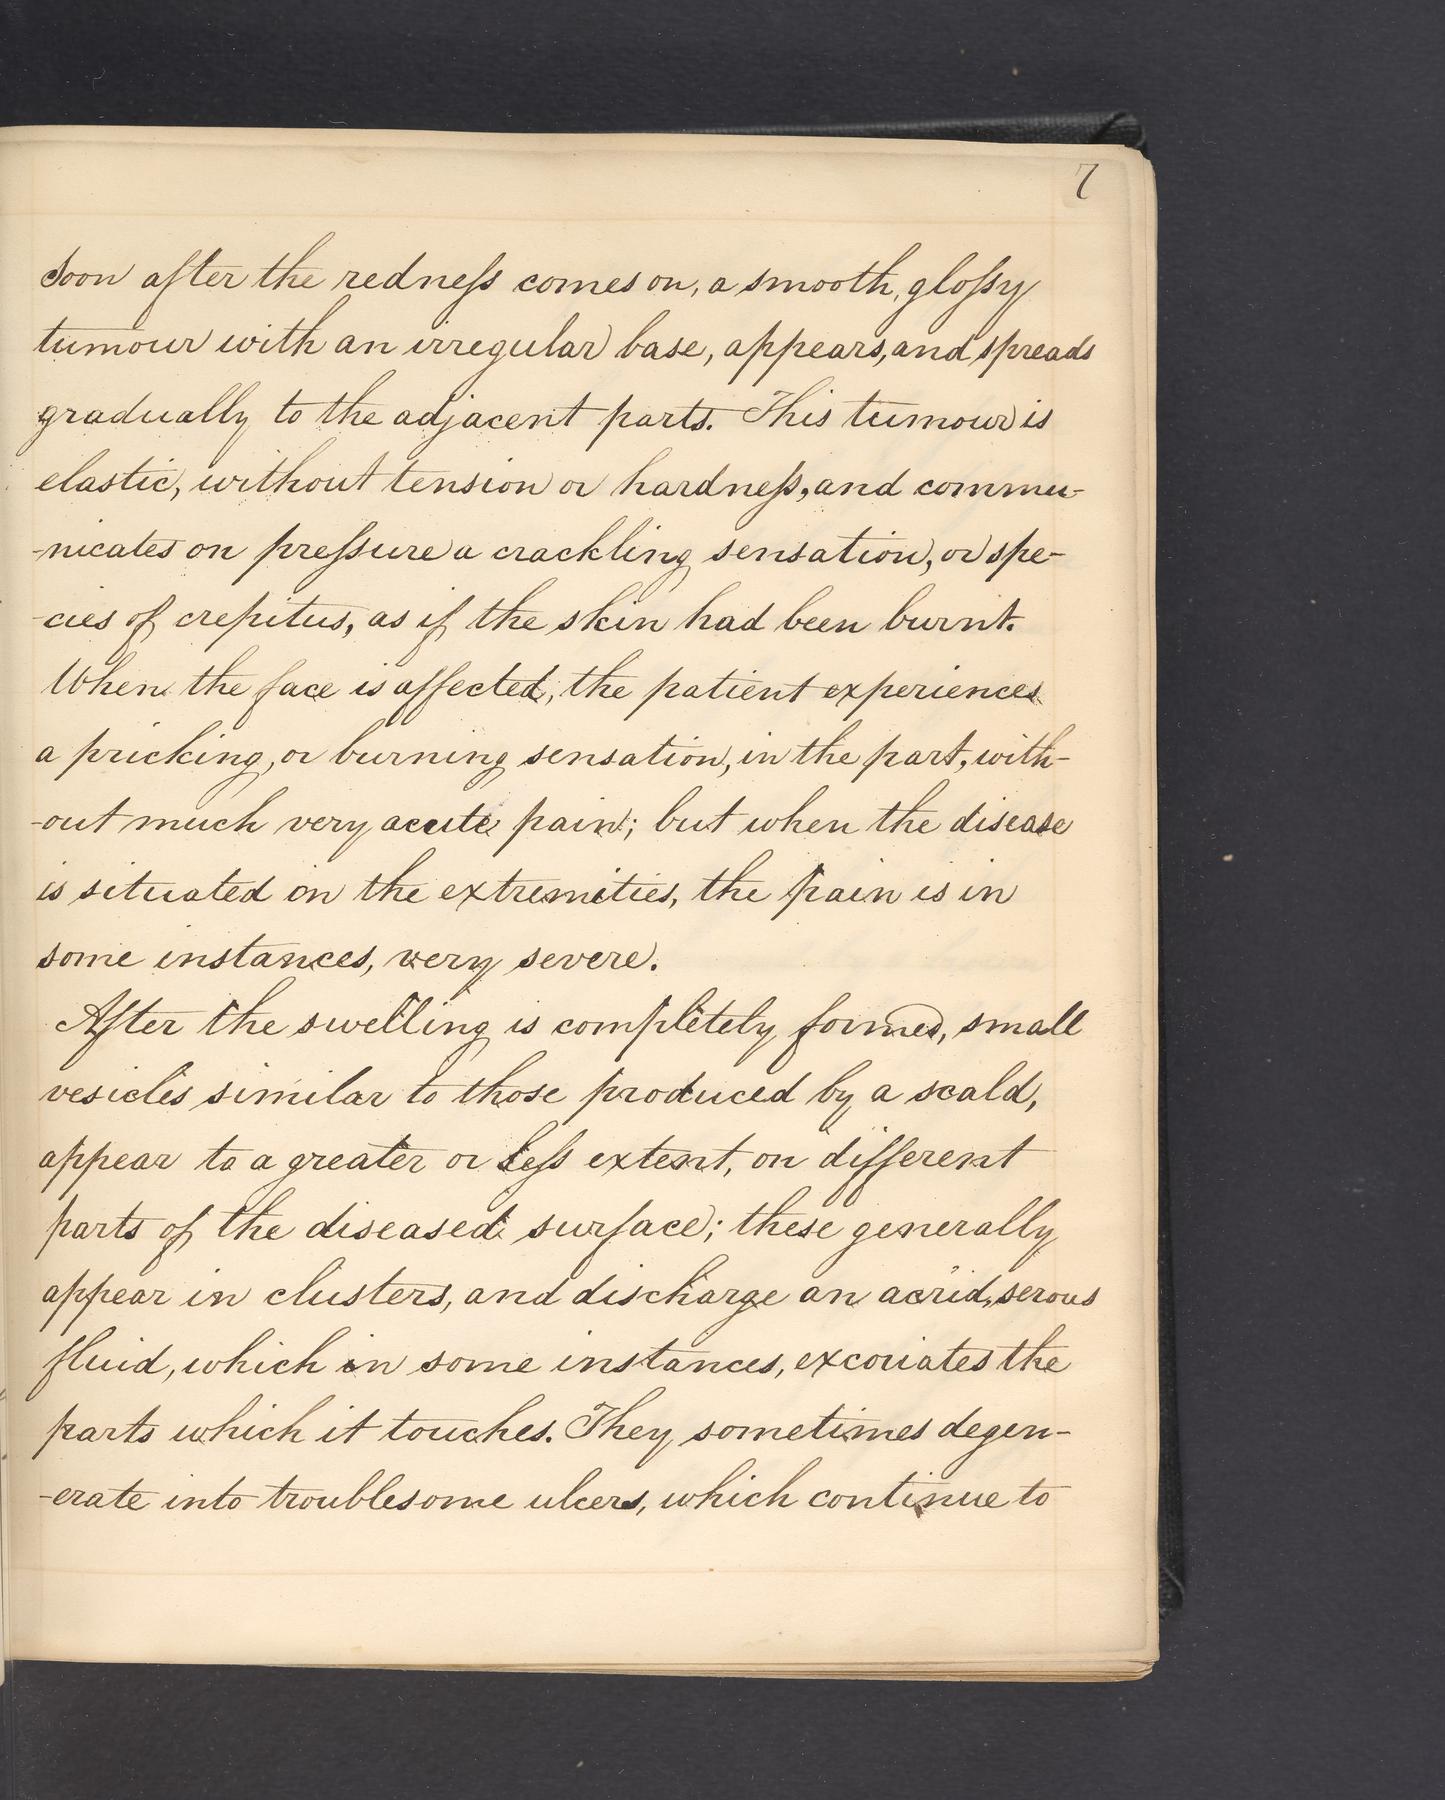 7
Soon after the redneſs comes on, a smooth, gloſsy
tumour with an irregular base, appears, and spreads
gradually to the adjacent parts. This tumour is
elastic, without tension or hardneſs, and commu-
-nicates on preſsure a crackling sensation, or spe-
-cies of crepitus, as if the skin had been burnt.
When the face is affected, the patient experiences
a pricking, or burning sensation, in the part, with-
-out much very acute pain; but when the disease
is situated on the extremities, the pain is in
some instances, very severe.
After the swelling is completely formed, small
vesicles similar to those produced by a scald,
appear to a greater or leſs extent, on different
parts of the diseased surface; these generally
appear in clusters, and discharge an acrid, serous
fluid, which in some instances, excoriates the
parts which it touches. They sometimes degen-
-erate into troublesome ulcers, which continue to